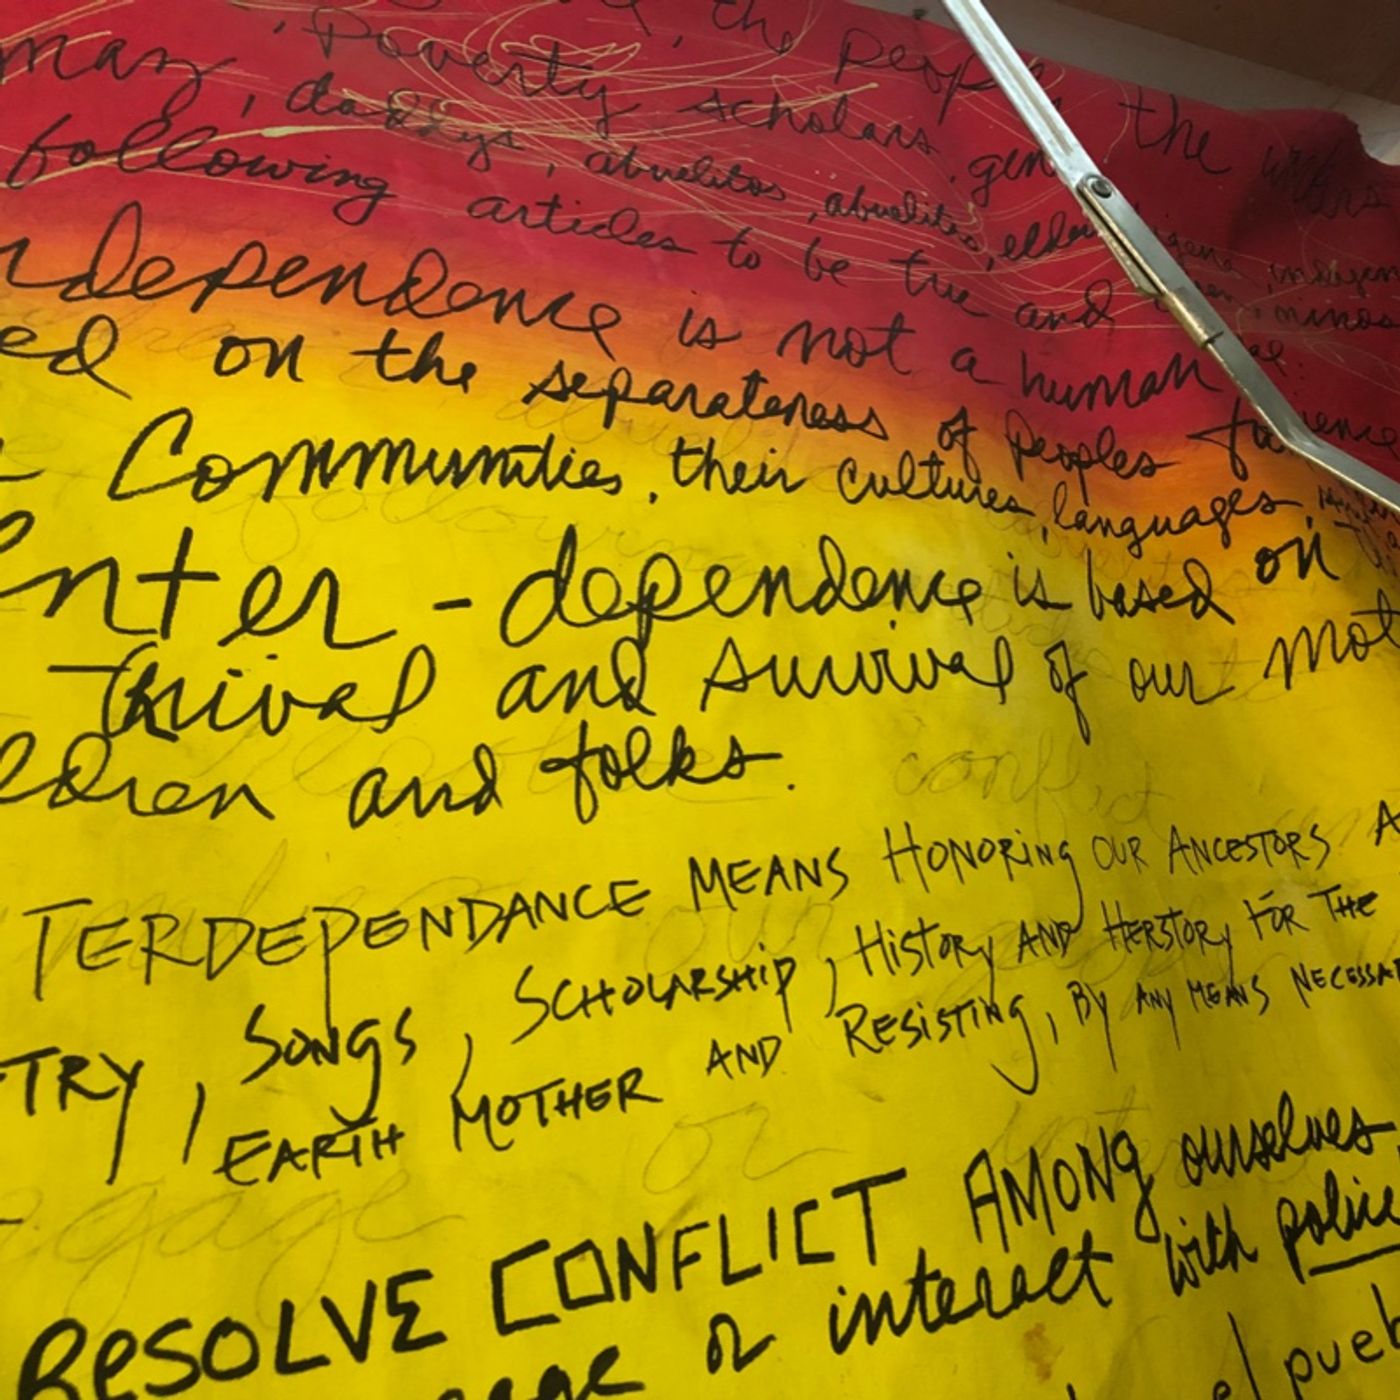 , the people the
mas, Poverty scholars, gen
daddys, abuelitos, abuelitas, elders
following articles to be true and
ndependence is not a human
ed on the separateness of peoples
Communities, their cultures, languages,
nter-dependence is based on
Thrival and survival of our mot
ldren and folks.
TERDEPENDANCE MEANS HONORING OUR ANCESTORS. A
TRY, SONGS, SCHOLARSHIP, HISTORY AND HERSTORY FOR THE
EARTH MOTHER AND RESISTING, BY ANY MEANS NECESSAR
RESOLVE CONFLICT AMONG ourselves
gage or interact with polic
el pueb